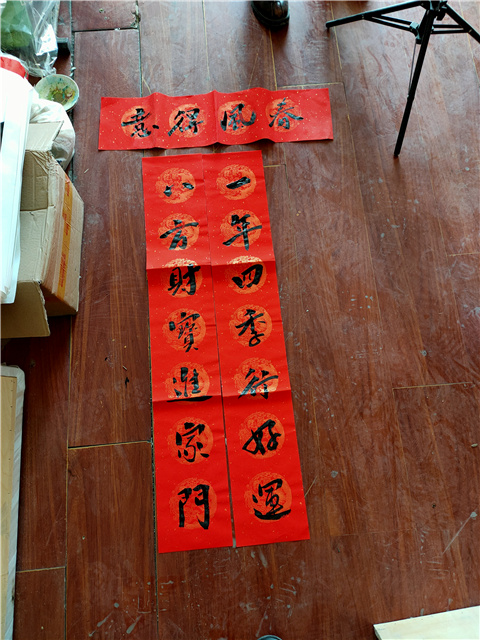 春風得意
一年四季行好運
八方財寶進家門